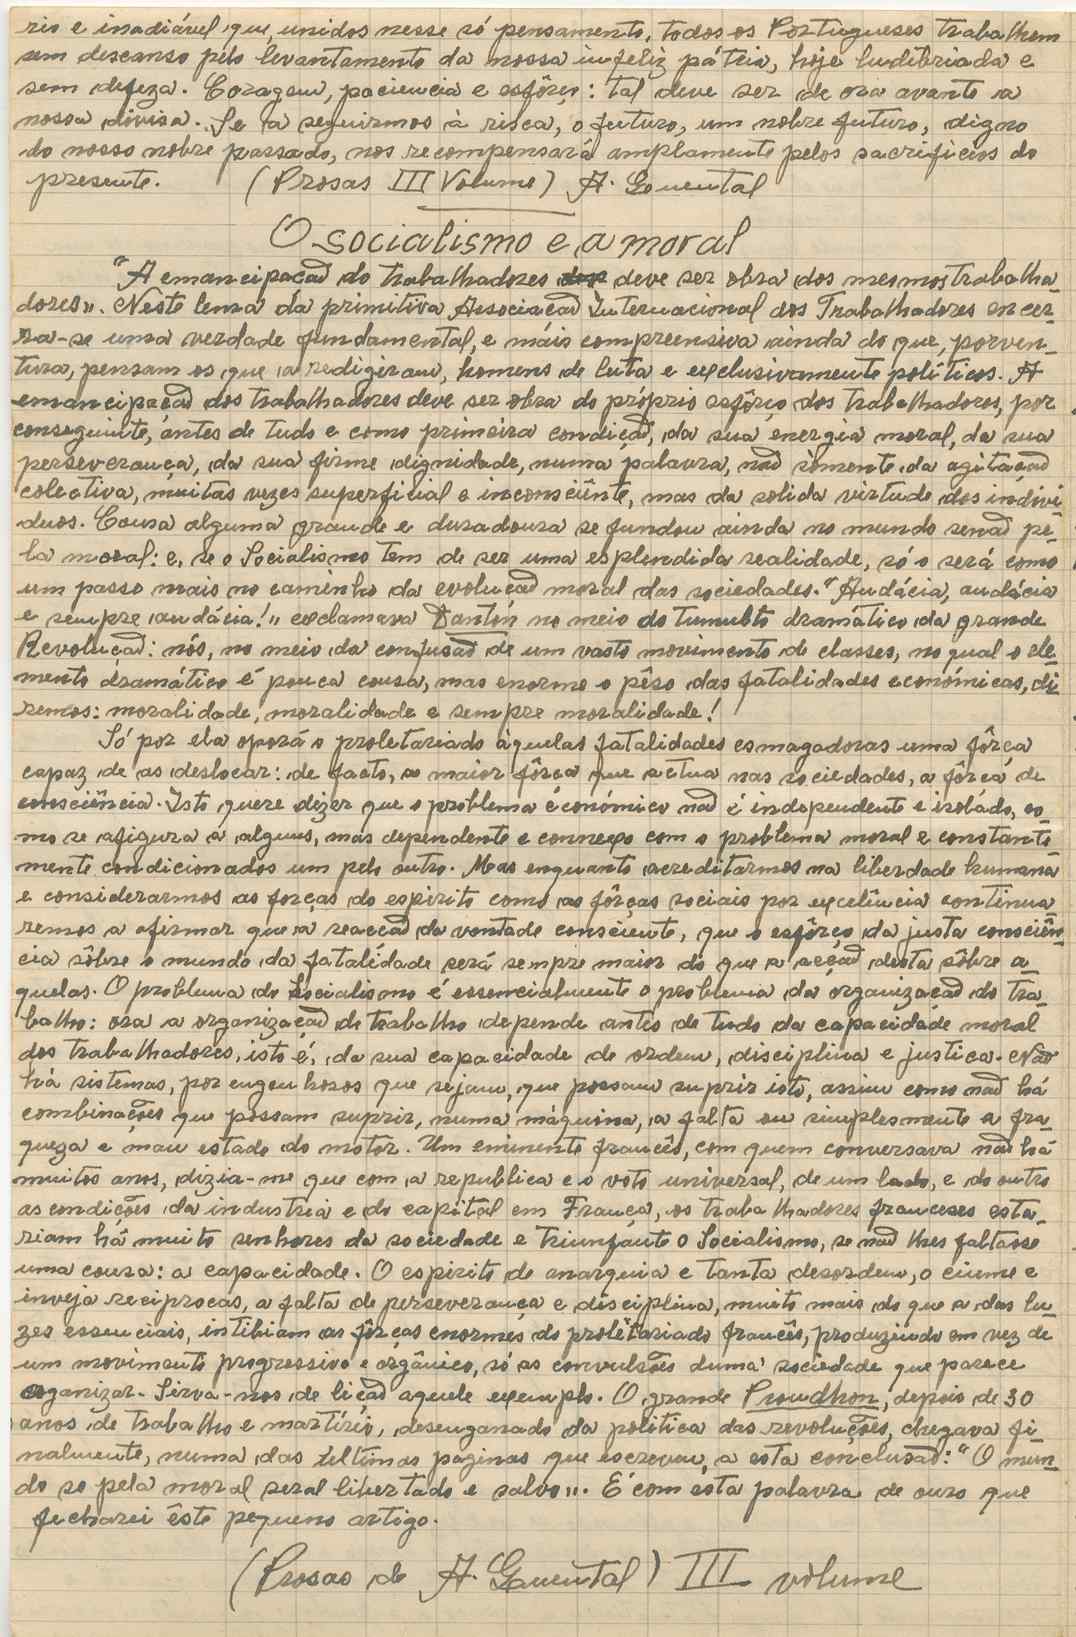 rio e inadiável que, unidos nesse só pensamento, todos os Portugueses trabalhem
sem descanso pélo levantamento da nossa infeliz pátria, hoje ludibriada e
sem defeza. Coragem, paciencia e esfôrço: tal deve ser de ora avante a
nossa divisa. Se a seguirmos à risca, o futuro, um nobre futuro, digno
do nosso nobre passado, nos recompensará amplamente pelos sacrificios do
presente. (Prosas III Volume) A. Quental
O socialismo e a moral
"A emancipação do trabalhadores deve ser obra dos mesmos trabalha-
dores". Neste lema da primitiva Associação Internacional dos Trabalhadores encer-
ra-se uma verdade fundamental, e máis compreensiva ainda do que, porven-
tura, pensam os que a redigiram, homens de luta e exclusivamente políticos. A
emancipação dos trabalhadores deve ser obra do próprio esfôrço dos trabalhadores, por
conseguinte, ántes de tudo e como primeira condição, da sua energia moral, da sua
perseverança, da sua firme dignidade, numa palavra, não sòmente da agitação
colectiva, muitas vezes superficial e inconsciênte, mas da solida virtude dos indiví-
duos. Cousa alguma grande e duradoura se fundou ainda no mundo senão pe-
la moral: e, se o Socialismo tem de ser uma esplendida realidade, só o será como
um passo mais no caminho da evolução moral das sociedades. "Audácia, audácia
e sempre audácia!" exclamava Dantón no meio do tumulto dramático da grande
Revolução: nós, no meio da confusão de um vasto movimento de classes, no qual o ele-
mento dramático é pouca cousa, mas enorme o pêso das fatalidades económicas, di-
remos: moralidade, moralidade e sempre moralidade!
Só por ela oporá o proletariado àquelas fatalidades esmagadoras uma fôrça
capaz de as deslocar: de facto, a maior fôrça que actua nas sociedades, a fôrça de
consciência. Isto quere dizer que o problema económico não é independente e isolado, co-
mo se afigura a alguns, mas dependente e connexo com o problema moral e constante
mente condicionados um pelo outro. Mas enquanto acreditarmos na liberdade humana
e considerarmos as forças do espirito como as fôrças sociais por excelência continua
remos a afirmar que a reacção da vontade consciente, que o esfôrço da justa consciên-
cia sôbre o mundo da fatalidade será sempre maior do que a acção desta sôbre a-
quelas. O problema do Socialismo é essencialmente o problema da organização do tra-
balho: ora a organização de trabalho depende antes de tudo da capacidade moral
dos trabalhadores, isto é, da sua capacidade de ordem, disciplina e justiça. Não
há sistemas, por engenhosos que sejam, que possam suprir isto, assim como não há
combinações que possam suprir, numa máquina, a falta ou simplesmente a fra-
queza e mau estado do motor. Um eminente francês, com quem conversava não há
muitos anos, dizia-me que com a republica e o voto universal, de um lado, e do outro
as condições da industria e do capital em França, os trabalhadores franceses esta-
riam há muito senhores da sociedade e triunfante o Socialismo, se não lhes faltasse
uma cousa: a capacidade. O espirito de anarquia e tanta desordem, o ciume e
inveja reciprocas, a falta de perseverança e disciplina, muito mais do que a das lu-
zes essenciais, inibiam as fôrças enormes do proletariado francês, produzindo em vez de
um movimento progressivo e orgânico, só as convulsões duma sociedade que parece
organizar. Sirva-nos de lição aquele exemplo. O grande Proudhon, depois de 30
anos de trabalho e martírio, desenganado da politica das revoluções, chegava fi-
nalmente, numa das últimas paginas que escreveu, a esta conclusão: "O mun-
do so pela moral seral libertado e salvo". É com esta palavra de ouro que
fecharei êste pequeno artigo.
(Prosas de A. Quental) III volume